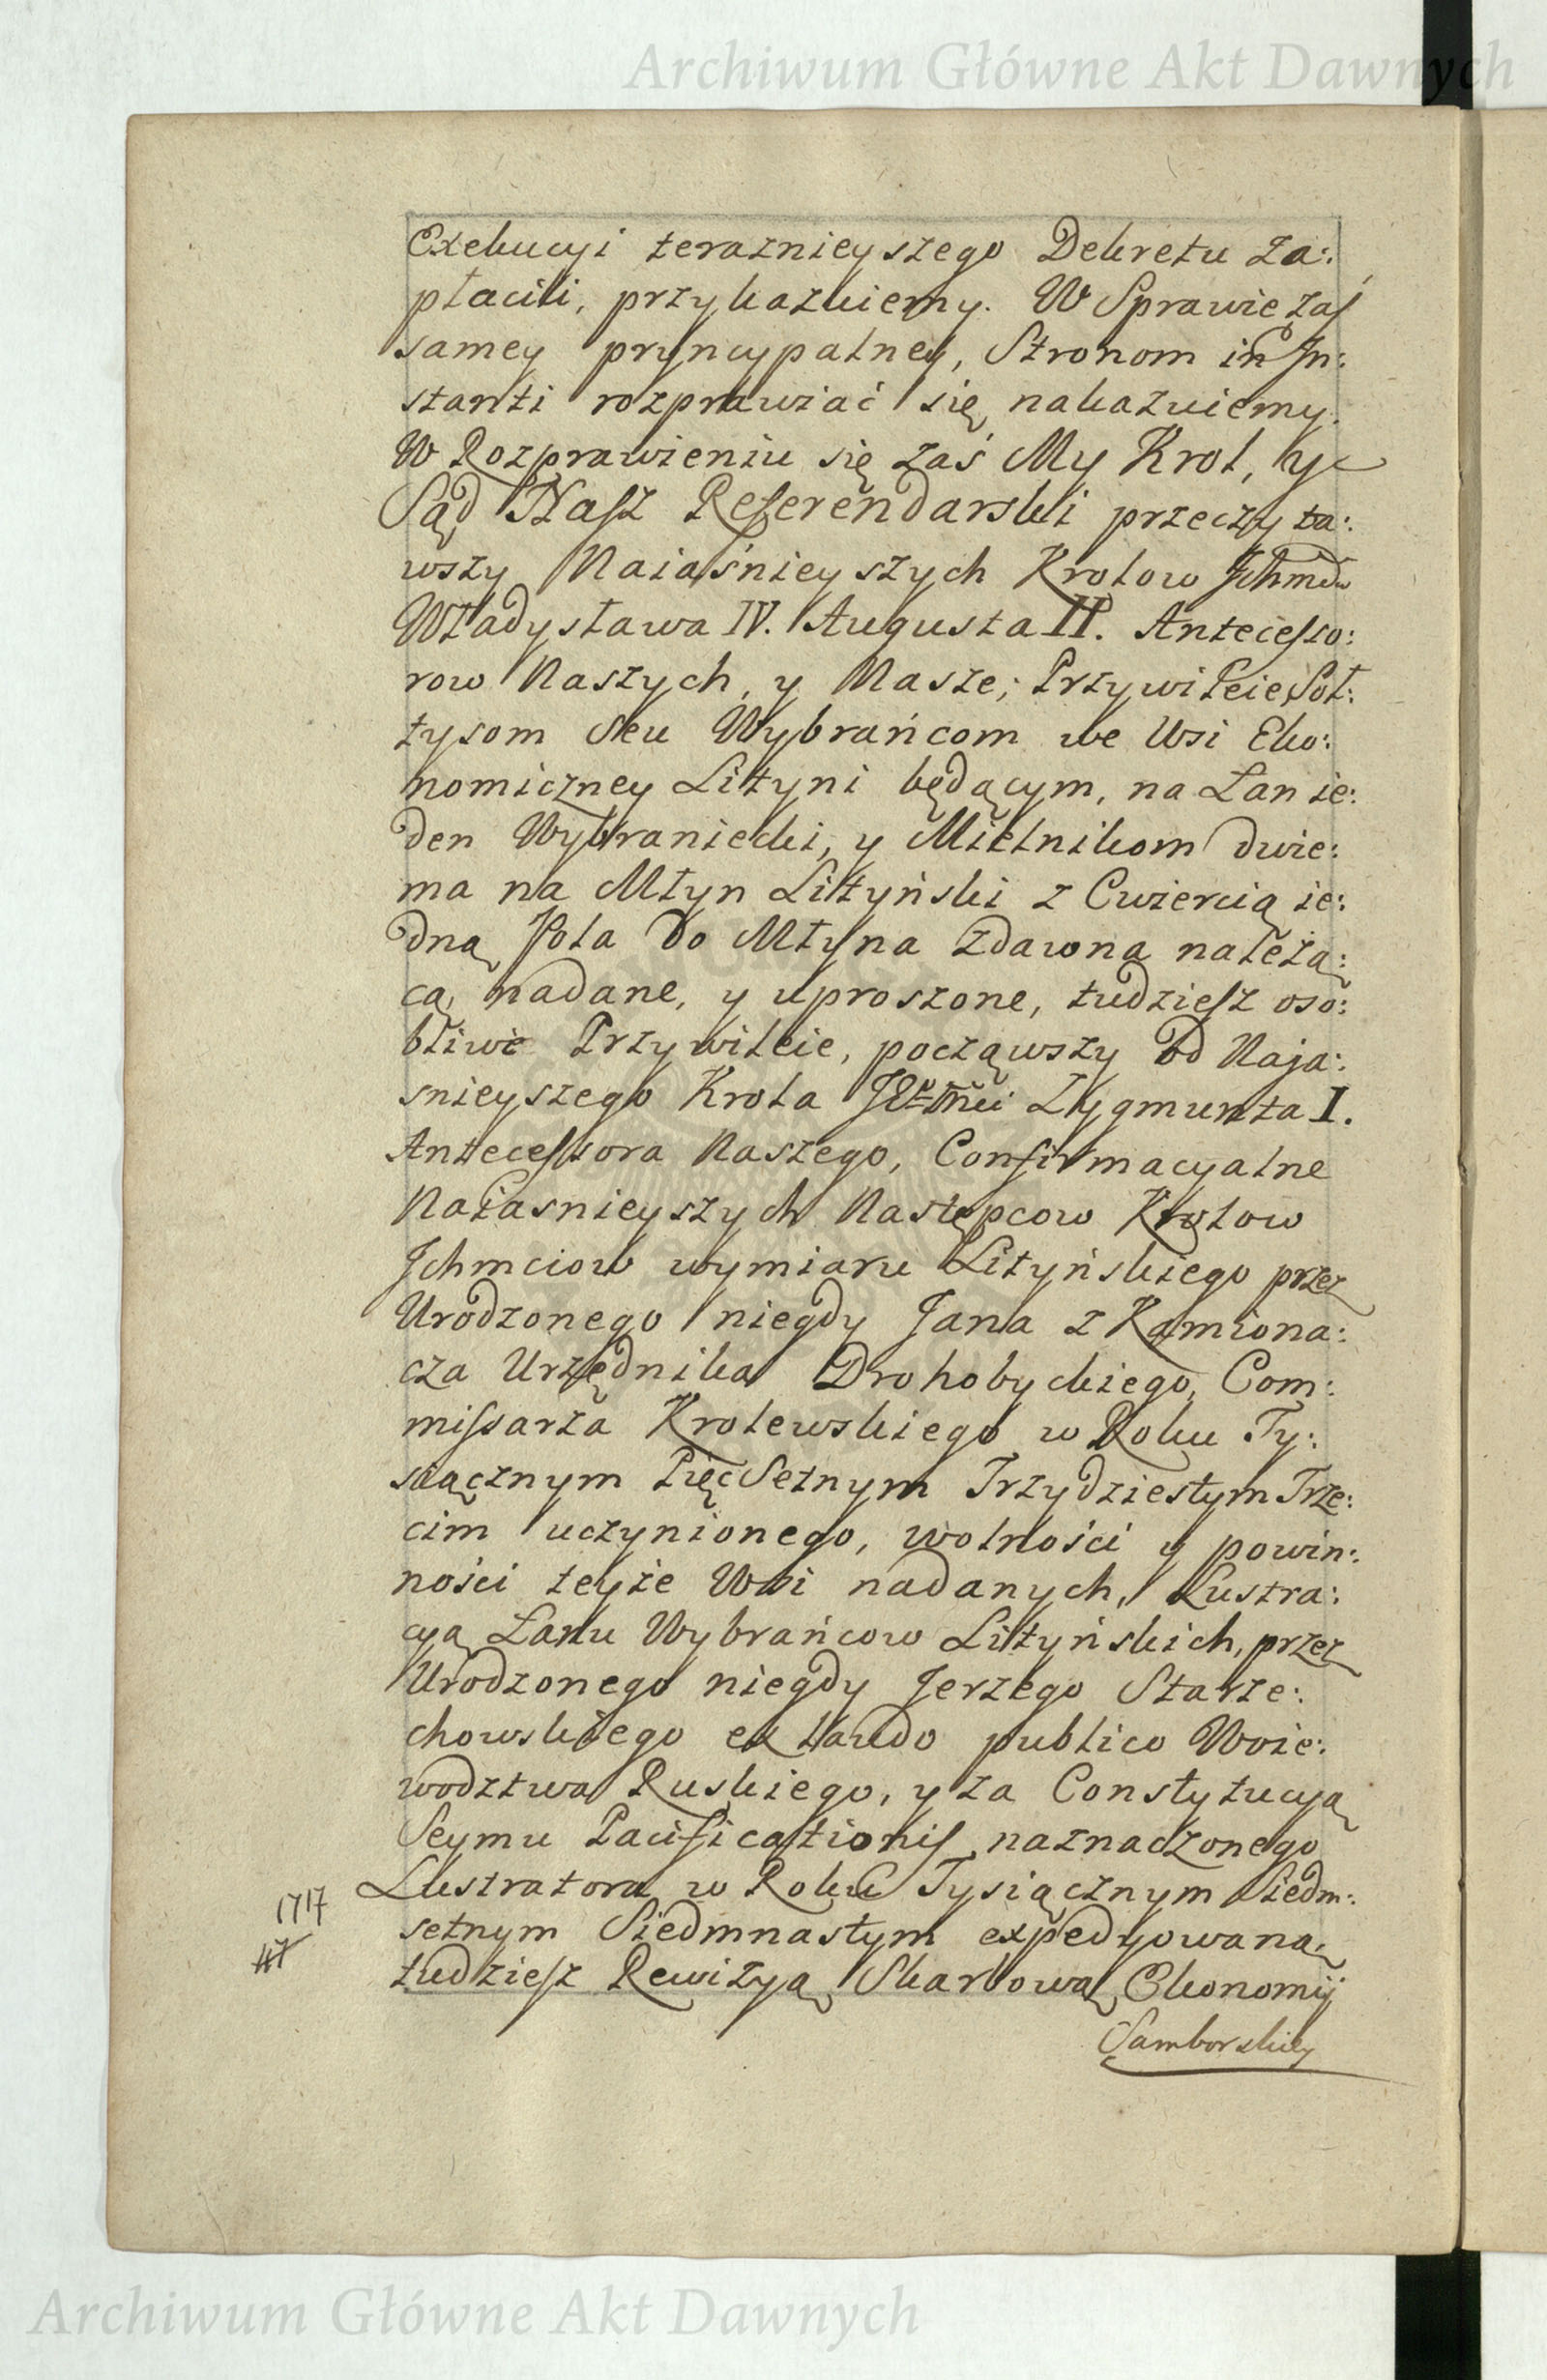 Archiwum Główne Akt Dawnych
Exekucyi teraznieyszego Dekretu za:
płacili, przykazuiemy. W Sprawie zaś
samey pryncypalney, Stronom in In:
stanti rozprawiać się nakazuiemy.
W Rozprawieniu się zaś My Krol, y
Sąd Nasz Referendarski przeczyta:
wszy Naiaśnieyszych Krolow Ichmciow
Władysława IV. Augusta II. Antecesso:
row Naszych, y Nasze; Przywileie Soł:
tysom Seu Wybrańcom we Wsi Eko:
nomiczney Lityni będącym, na Łan ie:
den Wybraniecki, y Mielnikom dwie:
ma na Młyn Lityński z Cwiercią ie:
dną Pola do Młyna zdawna należą:
cą, nadane, y uproszone, tudziesz oso:
bliwe Przywileie, począwszy od Naja:
snieyszego Krola Zygmunta I.
Antecessora Naszego, Confirmacyalne
Naiasnieyszych Następcow Krolow
Ichmciow wymiaru Lityńskiego przez
Urodzonego niegdy Jana z Kamiona:
cza Urzędnika Drohobyckiego, Com:
missarza Krolewskiego w Roku Ty:
siącznym Pięc Setnym Trzydziestym Trze:
cim uczynionego, wolności y powin:
ności teyże Wsi nadanych, Lustra:
cyą Łanu Wybrańcow Lityńskich, przez
Urodzonego niegdy Jerzego Starze:
chowskiego ex laudo publico Woie:
wodztwa Ruskiego, y za Constytucyą
Seymu Pacificationis naznaczonego
Lustratora w Roku Tysiącznym Siedm:
1717
setnym Siedmnastym expedyowaną,
tudziesz Rewizyą Skarbową Ekonomij
Samborskiey
Archiwum Główne Akt Dawnych